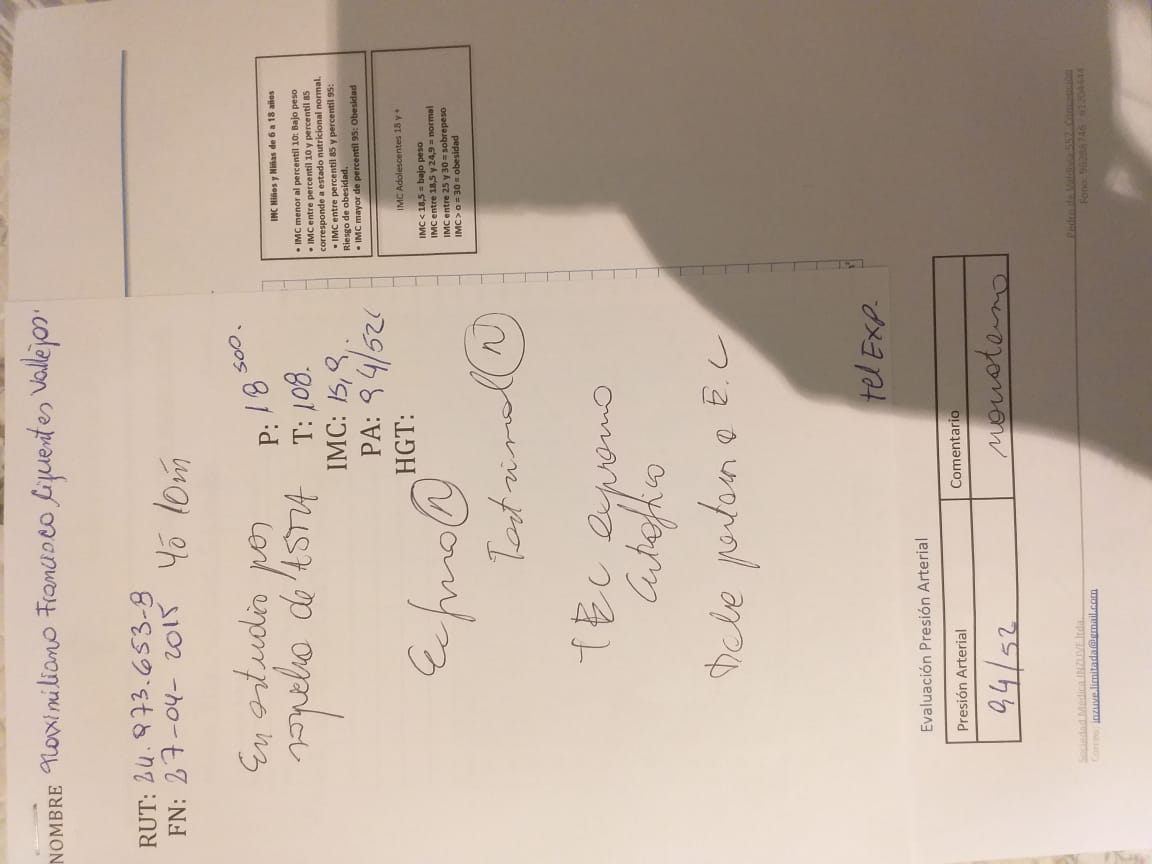 NOMBRE Maximiliano Francisco Cifuentes Vallejos.
RUT: 24.973.653-9
FN: 27-04-2015 4a 10m
En estudio por
sospecha de ASMA
P: 18 500.
T: 108.
IMC: 15,9.
PA: 94/52
HGT:
Ex fisico N
Test visual N
TEC
Eutrofico
Debe E.C
tel EXP.
IMC Niños y Niñas de 6 a 18 años
• IMC menor al percentil 10: Bajo peso
• IMC entre percentil 10 y percentil 85
corresponde a estado nutricional normal.
• IMC entre percentil 85 y percentil 95:
Riesgo de obesidad.
• IMC mayor de percentil 95: Obesidad
IMC Adolescentes 18 y +
IMC < 18,5 = bajo peso
IMC entre 18,5 y 24,9 = normal
IMC entre 25 y 30 = sobrepeso
IMC > o = 30 = obesidad
Evaluación Presión Arterial
Presión Arterial
Comentario
94/52
normotenso
Sociedad Médica INZUVE ltda.
Correo: inzuve.limitada@gmail.com
Pedro de Valdivia 552, Concepción
Fono: 96288746 - 61204444